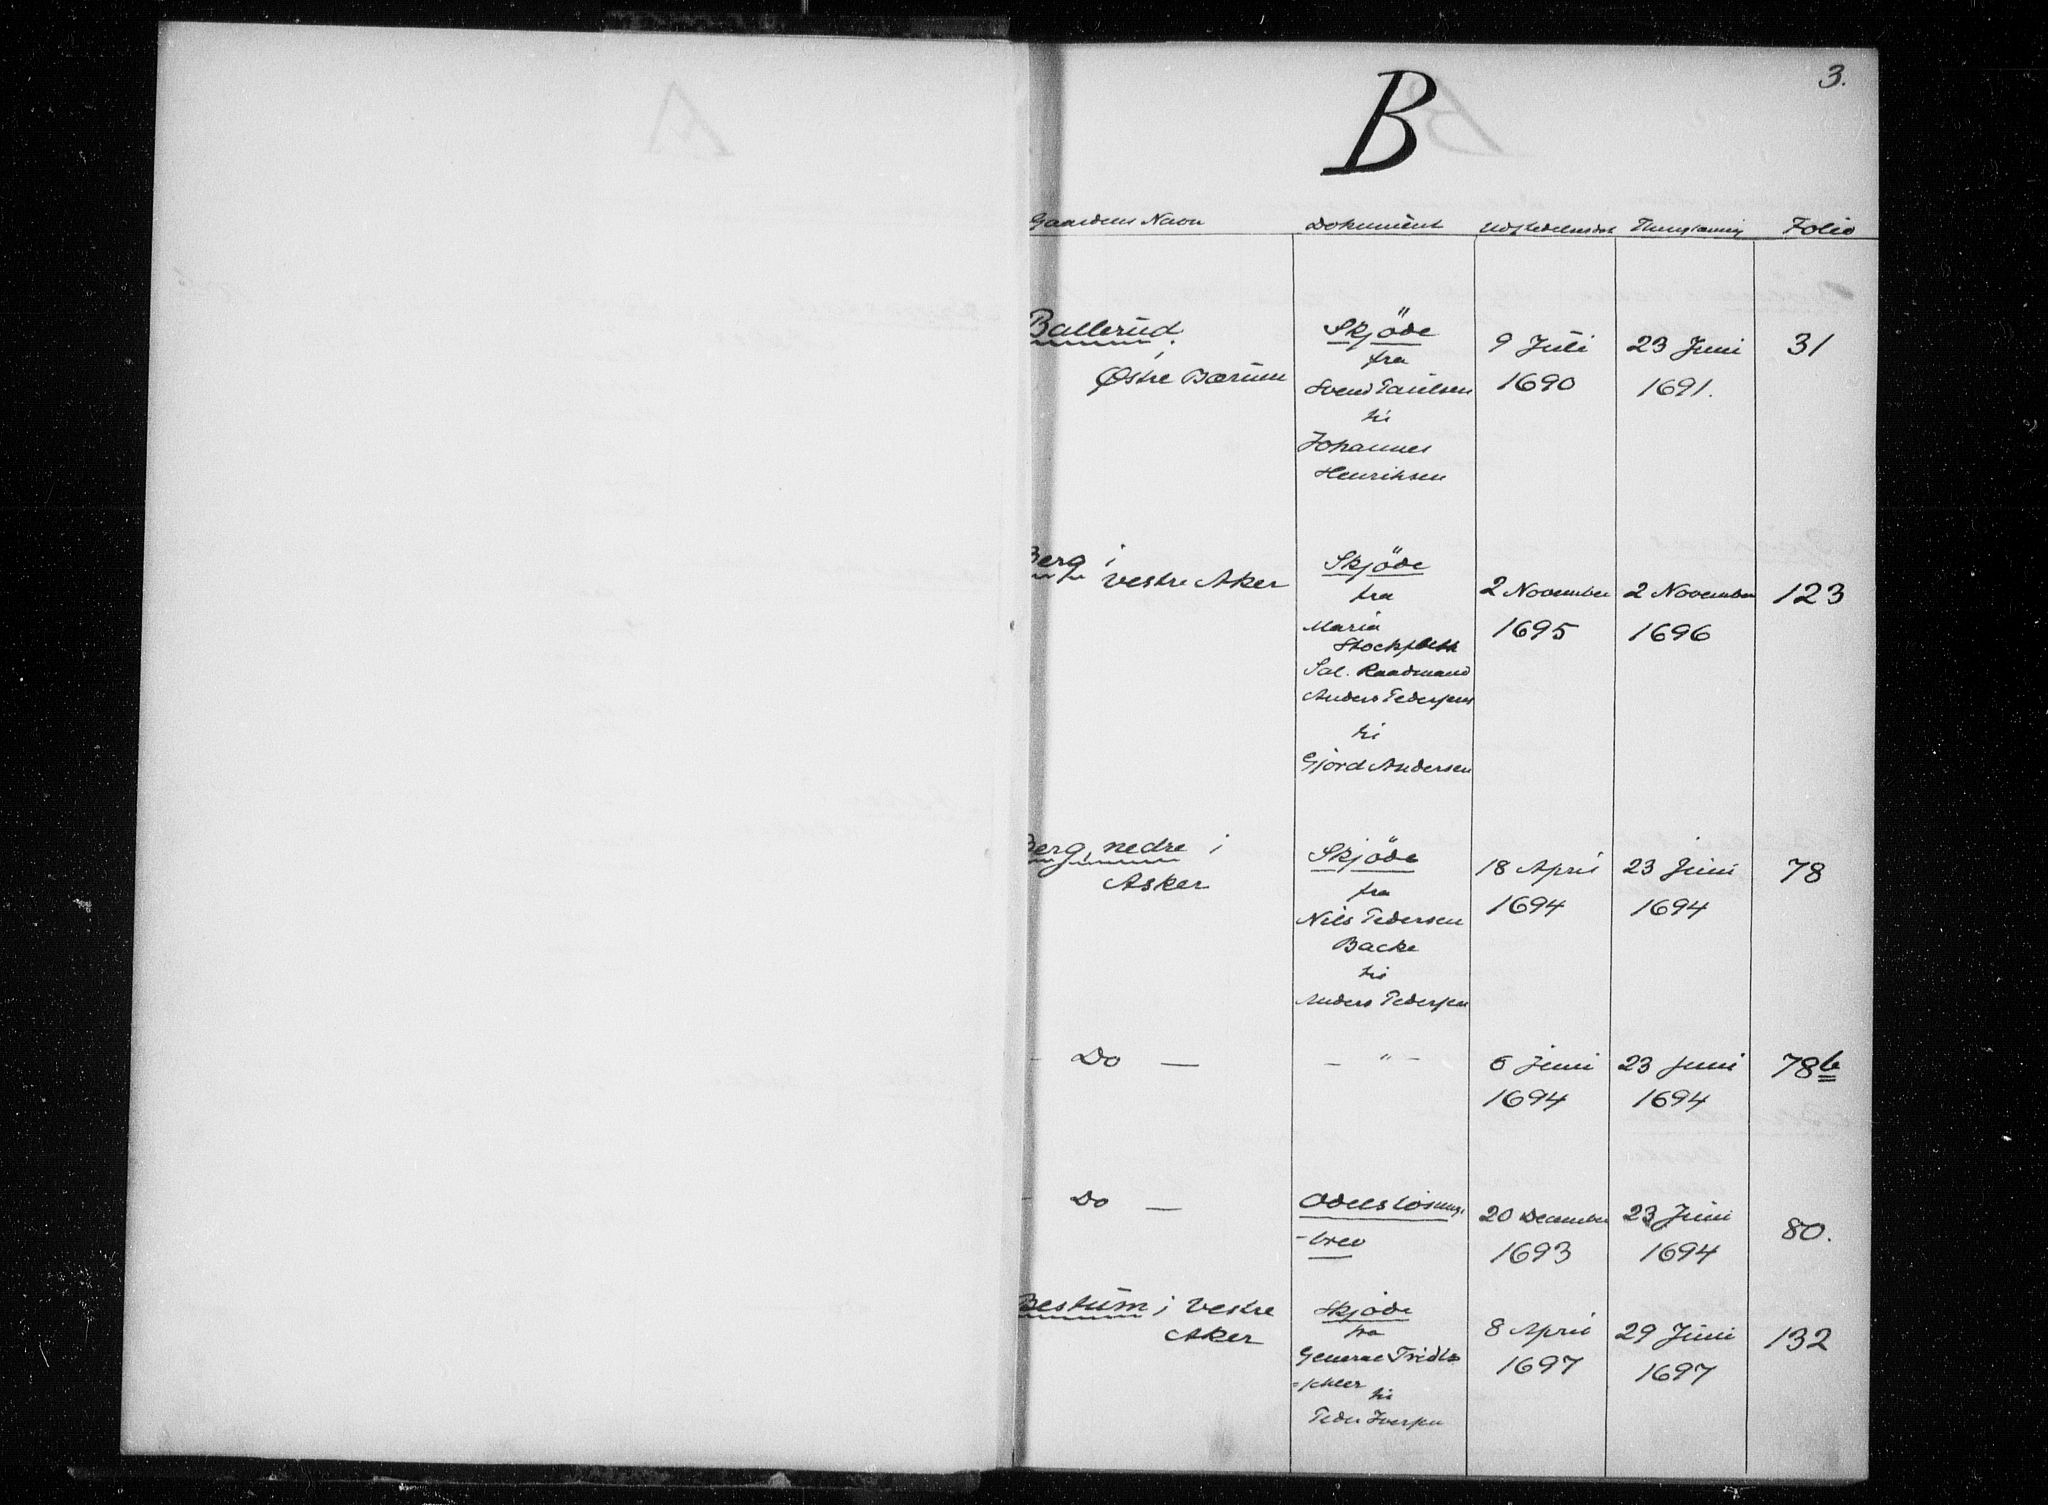 3.
B
Gaardens Navn Dokument Udstedelsesdat Thinglæsning Folio
Ballerud i Østre Bærum
Skjöde
fra
Svend Paulsen
til
Johannes
Henriksen
9 Juli
1690
23 Juni
1691.
31
Berg i
vestre Aker
Skjöde
fra
Maria
Stockfleth
Sal. Raadmand
Anders Pedersens
til
Gjord Andersen
2 November
1695
2 November
1696
123
Berg, nedre i
Asker
Skjöde
fra
Nils Pedersen
Backe
til
Anders Pedersen
18 April
1694
23 Juni
1694
78
- Do —
- " -
6 Juni
1694
23 Juni
1694
78b
- Do —
Odelslösnings
-brev
20 December
1693
23 Juni
1694
80.
Bestum i Vestre
Aker
Skjöde
fra
General
til
Peder Iversen
8 April
1697
29 Juni
1697
132